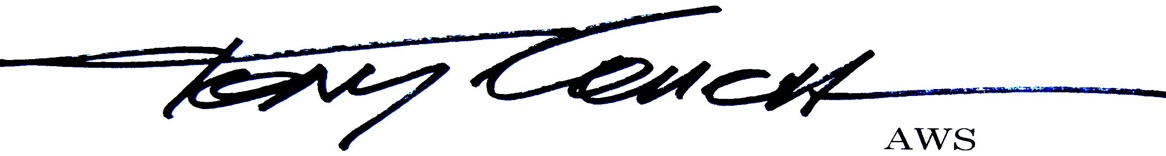 Tony Couch
AWS